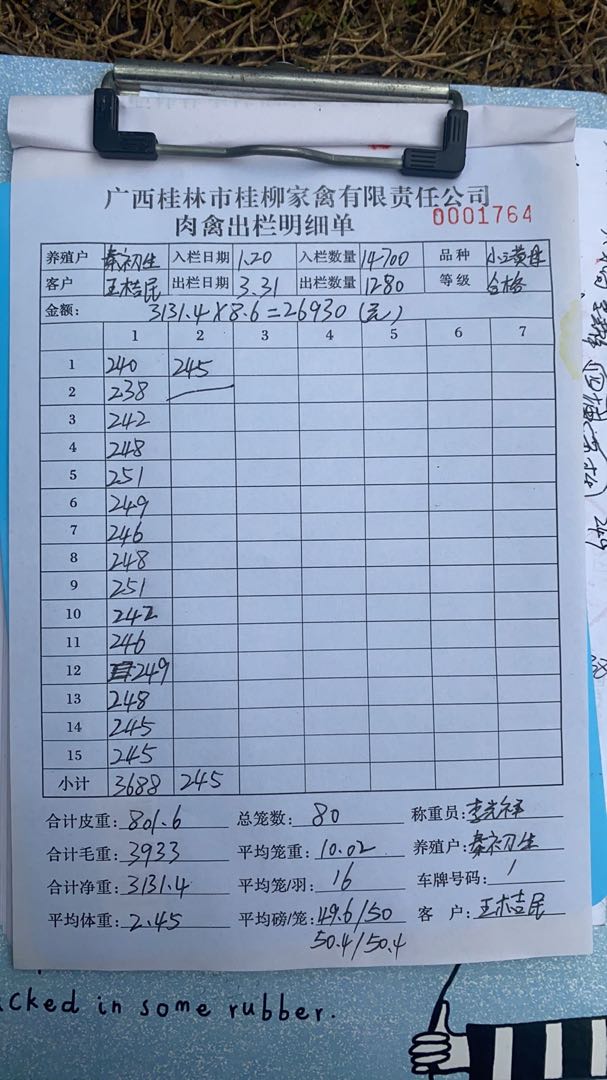 广西桂林市桂柳家禽有限责任公司
肉禽出栏明细单 0001764
养殖户 秦初生 入栏日期 1.20 入栏数量 14700 品种
客户 王桔民 出栏日期 3.31 出栏数量 1280 等级 合格
金额: 3131.4×8.6=26930(元)
1 2 3 4 5 6 7
1 240 245
2 238
3 242
4 248
5 251
6 249
7 246
8 248
9 251
10 242
11 246
12 249
13 248
14 245
15 245
小计 3688 245
合计皮重: 801.6 总笼数: 80 称重员:
合计毛重: 3933 平均笼重: 10.02 养殖户: 秦初生
合计净重: 3131.4 平均笼/羽: 16 车牌号码: 1
平均体重: 2.45 平均磅/笼: 49.6/50 客 户: 王桔民
50.4/50.4
cked in some rubber.
249